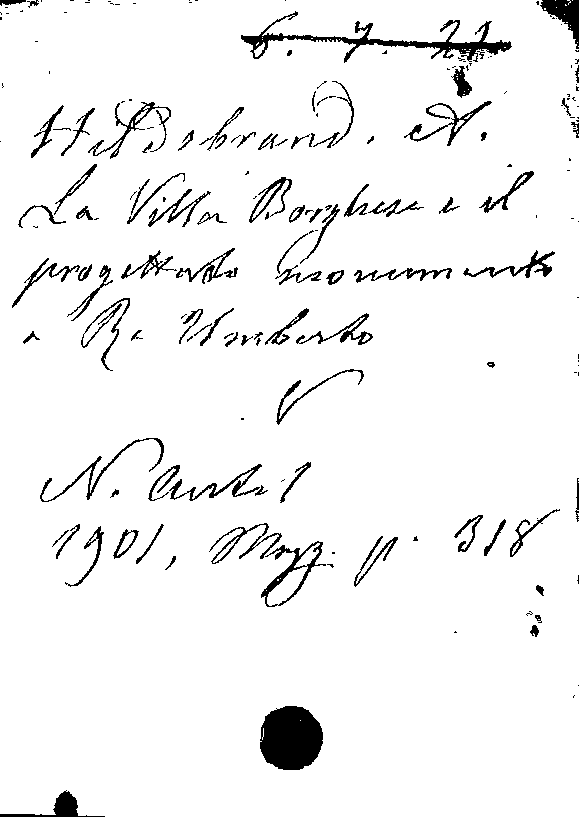 6. 7. 21
Hildebrand. A.
La Villa Borghese e il
progettato monumento
a Re Umberto
V
N. Antol
1901, Magg. p. 318